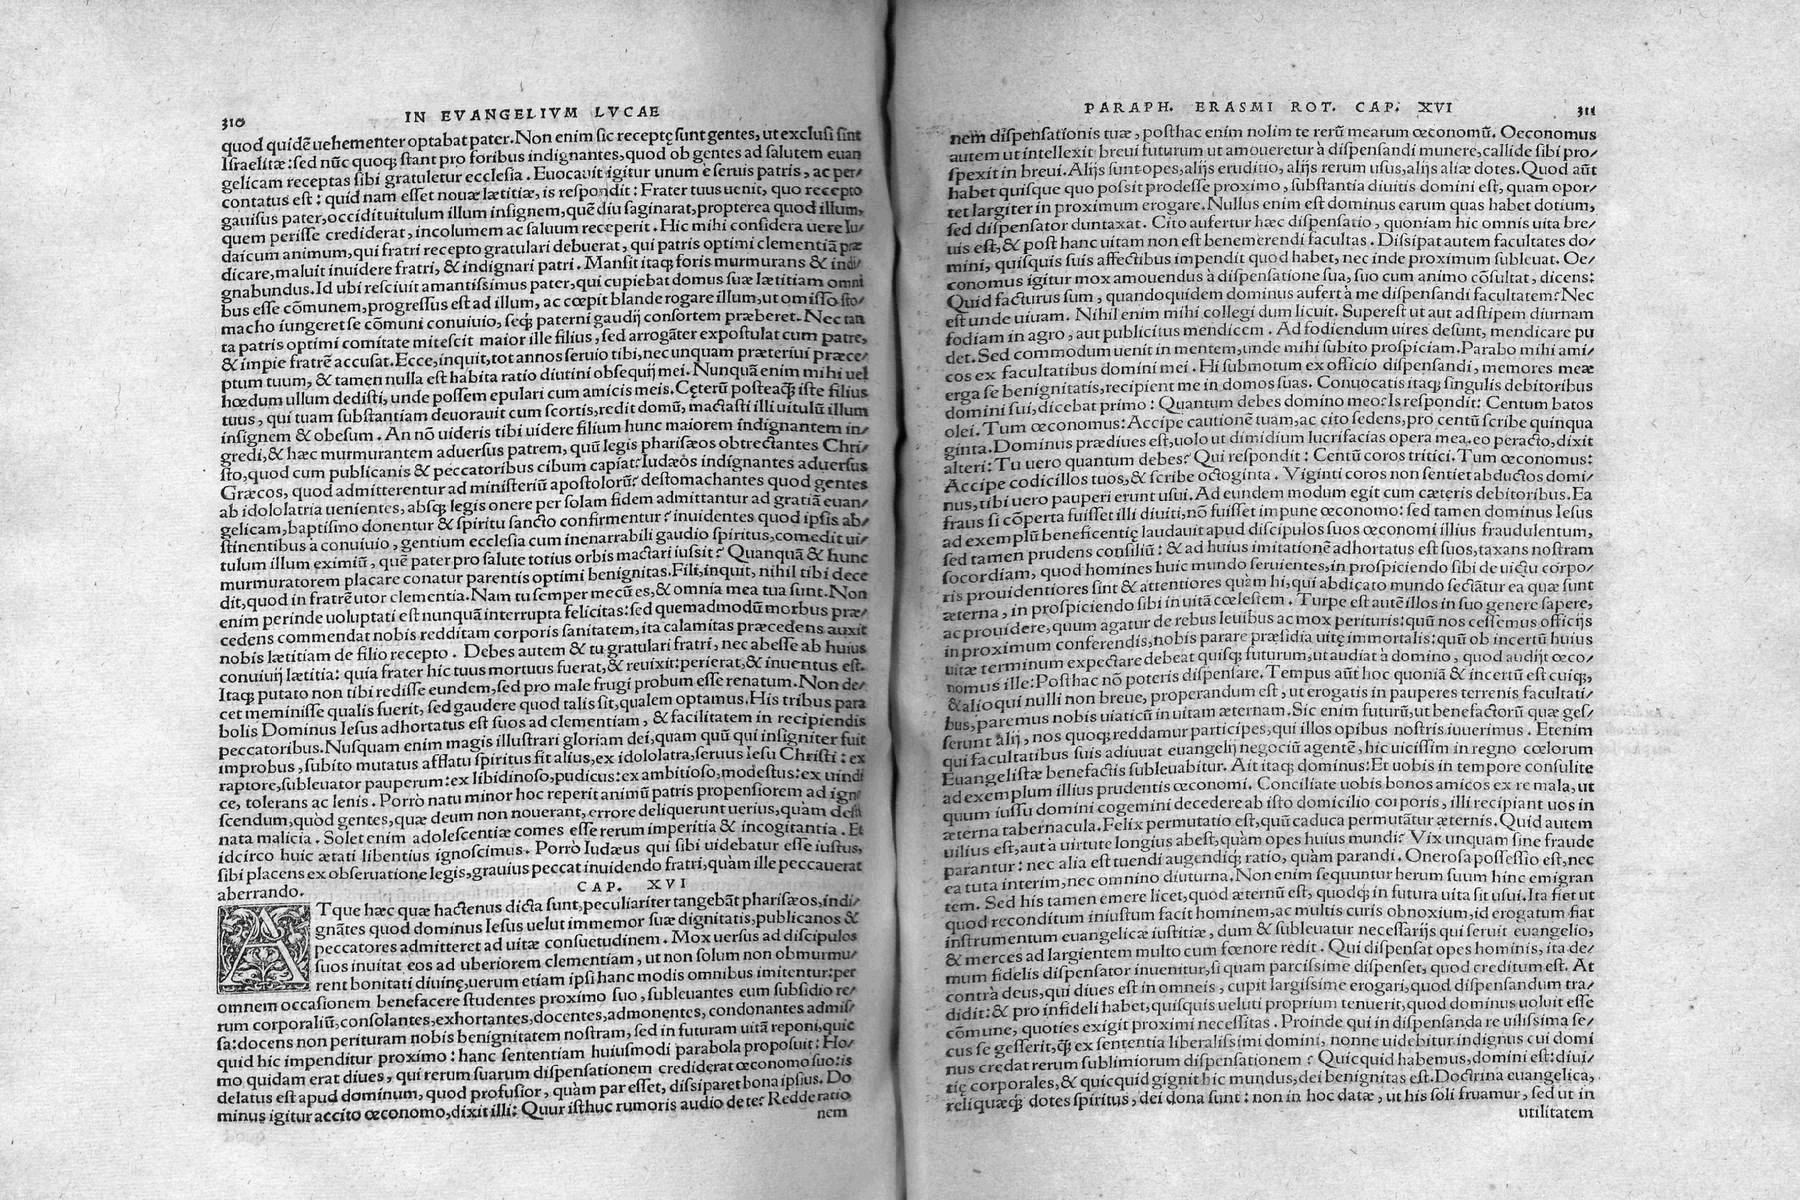 310 IN EVANGELIVM LVCAE
quod quidē uehementer optabat pater. Non enim sic receptę sunt gentes, ut exclusi sint
Israelitæ: sed nūc quoq; stant pro foribus indignantes, quod ob gentes ad salutem euan
gelicam receptas sibi gratuletur ecclesia. Euocauit igitur unum è seruis patris, ac per/
contatus est: quid nam esset nouæ lætitiæ, is respondit: Frater tuus uenit, quo recepto
gauisus pater, occidit uitulum illum insignem, quē diu saginarat, propterea quod illum,
quem perisse crediderat, incolumem ac saluum receperit. Hic mihi considera uere Iu/
daicum animum, qui fratri recepto gratulari debuerat, qui patris optimi clementiā præ
dicare, maluit inuidere fratri, & indignari patri. Mansit itaq; foris murmurans & indi/
gnabundus. Id ubi resciuit amantissimus pater, qui cupiebat domus suæ lætitiam omni
bus esse cōmunem, progressus est ad illum, ac cœpit blande rogare illum, ut omisso sto/
macho iungeret se cōmuni conuiuio, seq; paterni gaudij consortem præberet. Nec tan
ta patris optimi comitate mitescit maior ille filius, sed arrogāter expostulat cum patre,
& impie fratrē accusat. Ecce, inquit, tot annos seruio tibi, nec unquam præteriui præce/
ptum tuum, & tamen nulla est habita ratio diutini obsequij mei. Nunquā enim mihi uel
hœdum ullum dedisti, unde possem epulari cum amicis meis. Cęterū posteaq̃ iste filius
tuus, qui tuam substantiam deuorauit cum scortis, redit domū, mactasti illi uitulū illum
insignem & obesum. An nō uideris tibi uidere filium hunc maiorem indignantem in/
gredi, & hæc murmurantem aduersus patrem, quū legis pharisæos obtrectantes Chri/
sto, quod cum publicanis & peccatoribus cibum capiat? Iudæos indignantes aduersus
Græcos, quod admitterentur ad ministeriū apostolorū? destomachantes quod gentes
ab idololatria uenientes, absq; legis onere per solam fidem admittantur ad gratiā euan/
gelicam, baptismo donentur & spiritu sancto confirmentur? inuidentes quod ipsis ab/
stinentibus a conuiuio, gentium ecclesia cum inenarrabili gaudio spiritus, comedit ui/
tulum illum eximiū, quē pater pro salute totius orbis mactari iussit? Quanquā & hunc
murmuratorem placare conatur parentis optimi benignitas. Fili, inquit, nihil tibi dece
dit, quod in fratrē utor clementia. Nam tu semper mecū es, & omnia mea tua sunt. Non
enim perinde uoluptati est nunquā interrupta felicitas: sed quemadmodū morbus præ/
cedens commendat nobis redditam corporis sanitatem, ita calamitas præcedens auxit
nobis lætitiam de filio recepto. Debes autem & tu gratulari fratri, nec abesse ab huius
conuiuij lætitia: quia frater hic tuus mortuus fuerat, & reuixit: perierat, & inuentus est.
Itaq; putato non tibi redisse eundem, sed pro male frugi probum esse renatum. Non de/
cet meminisse qualis fuerit, sed gaudere quod talis sit, qualem optamus. His tribus para
bolis Dominus Iesus adhortatus est suos ad clementiam, & facilitatem in recipiendis
peccatoribus. Nusquam enim magis illustrari gloriam dei, quam quū qui insigniter fuit
improbus, subito mutatus afflatu spiritus fit alius, ex idololatra, seruus Iesu Christi: ex
raptore, subleuator pauperum: ex libidinoso, pudicus: ex ambitioso, modestus: ex uindi
ce, tolerans ac lenis. Porrò natu minor hoc reperit animū patris propensiorem ad igno
scendum, quòd gentes, quæ deum non nouerant, errore deliquerunt uerius, quàm desti
nata malicia. Solet enim adolescentiæ comes esse rerum imperitia & incogitantia. Et
idcirco huic ætati libentius ignoscimus. Porrò Iudæus qui sibi uidebatur esse iustus,
sibi placens ex obseruatione legis, grauius peccat inuidendo fratri, quàm ille peccauerat
aberrando.
CAP. XVI
ATque hæc quæ hactenus dicta sunt, peculiariter tangebāt pharisæos, indi/
gnātes quod dominus Iesus uelut immemor suæ dignitatis, publicanos &
peccatores admitteret ad uitæ consuetudinem. Mox uersus ad discipulos
suos inuitat eos ad uberiorem clementiam, ut non solum non obmurmu/
rent bonitati diuinę, uerum etiam ipsi hanc modis omnibus imitentur: per
omnem occasionem benefacere studentes proximo suo, subleuantes eum subsidio re/
rum corporaliū, consolantes, exhortantes, docentes, admonentes, condonantes admis/
sa: docens non perituram nobis benignitatem nostram, sed in futuram uitā reponi, quic
quid hic impenditur proximo: hanc sententiam huiusmodi parabola proposuit: Ho/
mo quidam erat diues, qui rerum suarum dispensationem crediderat œconomo suo: is
delatus est apud dominum, quod profusior, quàm par esset, dissiparet bona ipsius. Do
minus igitur accito œconomo, dixit illi: Quur isthuc rumoris audio de te? Redde ratio
nem
PARAPH. ERASMI ROT. CAP. XVI 311
nem dispensationis tuæ, posthac enim nolim te rerū mearum œconomū. Oeconomus
autem ut intellexit breui futurum ut amoueretur à dispensandi munere, callide sibi pro/
spexit in breui. Alijs sunt opes, alijs eruditio, alijs rerum usus, alijs aliæ dotes. Quod aūt
habet quisque quo possit prodesse proximo, substantia diuitis domini est, quam opor/
tet largiter in proximum erogare. Nullus enim est dominus earum quas habet dotium,
sed dispensator duntaxat. Cito aufertur hæc dispensatio, quoniam hic omnis uita bre/
uis est, & post hanc uitam non est benemerendi facultas. Dissipat autem facultates do/
mini, quisquis suis affectibus impendit quod habet, nec inde proximum subleuat. Oe/
conomus igitur mox amouendus à dispensatione sua, suo cum animo cōsultat, dicens:
Quid facturus sum, quandoquidem dominus aufert à me dispensandi facultatem? Nec
est unde uiuam. Nihil enim mihi collegi dum licuit. Superest ut aut ad stipem diurnam
fodiam in agro, aut publicitus mendicem. Ad fodiendum uires desunt, mendicare pu
det. Sed commodum uenit in mentem, unde mihi subito prospiciam. Parabo mihi ami/
cos ex facultatibus domini mei. Hi submotum ex officio dispensandi, memores meæ
erga se benignitatis, recipient me in domos suas. Conuocatis itaq; singulis debitoribus
domini sui, dicebat primo: Quantum debes domino meo? Is respondit: Centum batos
olei. Tum œconomus: Accipe cautionē tuam, ac cito sedens, pro centū scribe quinqua
ginta. Dominus prædiues est, uolo ut dimidium lucrifacias opera mea. eo peracto, dixit
alteri: Tu uero quantum debes? Qui respondit: Centū coros tritici. Tum œconomus:
Accipe codicillos tuos, & scribe octoginta. Viginti coros non sentiet abductos domi/
nus, tibi uero pauperi erunt usui. Ad eundem modum egit cum cæteris debitoribus. Ea
fraus si cōperta fuisset illi diuiti, nō fuisset impune œconomo: sed tamen dominus Iesus
ad exemplū beneficentię laudauit apud discipulos suos œconomi illius fraudulentum,
sed tamen prudens consiliū: & ad huius imitationē adhortatus est suos, taxans nostram
socordiam, quod homines huic mundo seruientes, in prospiciendo sibi de uictu corpo/
ris prouidentiores sint & attentiores quàm hi, qui abdicato mundo sectātur ea quæ sunt
æterna, in prospiciendo sibi in uitā cœlestem. Turpe est autē illos in suo genere sapere,
ac prouidere, quum agatur de rebus leuibus ac mox perituris: quū nos cessemus officijs
in proximum conferendis, nobis parare præsidia uitę immortalis: quū ob incertū huius
uitæ terminum expectare debeat quisq; futurum, ut audiat à domino, quod audijt œco/
nomus ille: Posthac nō poteris dispensare. Tempus aūt hoc quoniā & incertū est cuiq;,
& alioqui nulli non breue, properandum est, ut erogatis in pauperes terrenis facultati/
bus, paremus nobis uiaticū in uitam æternam. Sic enim futurū, ut benefactorū quæ ges/
serunt alij, nos quoq; reddamur participes, qui illos opibus nostris iuuerimus. Etenim
qui facultatibus suis adiuuat euangelij negociū agentē, hic uicissim in regno cœlorum
Euangelistæ benefactis subleuabitur. Ait itaq; dominus: Et uobis in tempore consulite
ad exemplum illius prudentis œconomi. Conciliate uobis bonos amicos ex re mala, ut
quum iussu domini cogemini decedere ab isto domicilio corporis, illi recipiant uos in
æterna tabernacula. Felix permutatio est, quū caduca permutātur æternis. Quid autem
uilius est, aut à uirtute longius abest, quàm opes huius mundi? Vix unquam sine fraude
parantur: nec alia est tuendi augendiq; ratio, quàm parandi. Onerosa possessio est, nec
ea tuta interim, nec omnino diuturna. Non enim sequuntur herum suum hinc emigran
tem. Sed his tamen emere licet, quod æternū est, quodq; in futura uita sit usui. Ita fiet ut
quod reconditum iniustum facit hominem, ac multis curis obnoxium, id erogatum fiat
instrumentum euangelicæ iustitiæ, dum & subleuatur necessarijs qui seruit euangelio,
& merces ad largientem multo cum fœnore redit. Qui dispensat opes hominis, ita de/
mum fidelis dispensator inuenitur, si quam parcissime dispenset, quod creditum est. At
contrà deus, qui diues est in omneis, cupit largissime erogari, quod dispensandum tra/
didit: & pro infideli habet, quisquis ueluti proprium tenuerit, quod dominus uoluit esse
cōmune, quoties exigit proximi necessitas. Proinde qui in dispensanda re uilissima se/
cus se gesserit, q̃ ex sententia liberalissimi domini, nonne uidebitur indignus cui domi
nus credat rerum sublimiorum dispensationem? Quicquid habemus, domini est: diui/
tię corporales, & quicquid gignit hic mundus, dei benignitas est. Doctrina euangelica,
reliquæq; dotes spiritus, dei dona sunt: non in hoc datæ, ut his soli fruamur, sed ut in
utilitatem